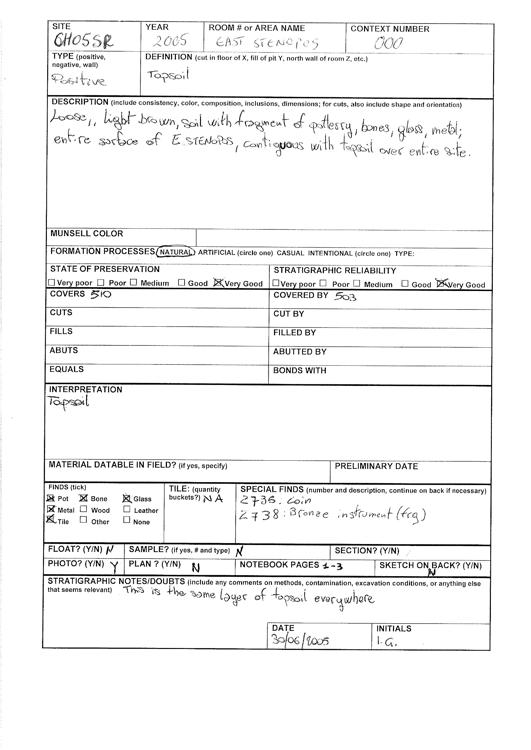 SITE YEAR ROOM # or AREA NAME CONTEXT NUMBER
CH05SR 2005 EAST STENOPOS 000
TYPE (positive, negative, wall) DEFINITION (cut in floor of X, fill of pit Y, north wall of room Z, etc.)
Positive Topsoil
DESCRIPTION (include consistency, color, composition, inclusions, dimensions; for cuts, also include shape and orientation)
Loose,, light brown, soil with fragment of potterry, bones, glass, metal;
entire surface of E. STENOPOS, contiguous with topsoil over entire site.
MUNSELL COLOR
FORMATION PROCESSES NATURAL ARTIFICIAL (circle one) CASUAL INTENTIONAL (circle one) TYPE:
STATE OF PRESERVATION STRATIGRAPHIC RELIABILITY
Very poor Poor Medium Good Very Good Very poor Poor Medium Good Very Good
COVERS 510 COVERED BY 503
CUTS CUT BY
FILLS FILLED BY
ABUTS ABUTTED BY
EQUALS BONDS WITH
INTERPRETATION
Topsoil
MATERIAL DATABLE IN FIELD? (if yes, specify) PRELIMINARY DATE
FINDS (tick) TILE: (quantity buckets?) NA SPECIAL FINDS (number and description, continue on back if necessary)
Pot Bone Glass 2736: coin
Metal Wood Leather 2738: Bronze instrument (frg)
Tile Other None
FLOAT? (Y/N) N SAMPLE? (if yes, # and type) N SECTION? (Y/N)
PHOTO? (Y/N) Y PLAN ? (Y/N) N NOTEBOOK PAGES 1-3 SKETCH ON BACK? (Y/N) N
STRATIGRAPHIC NOTES/DOUBTS (include any comments on methods, contamination, excavation conditions, or anything else
that seems relevant) This is the same layer of topsoil everywhere
DATE INITIALS
30/06/2005 I.G.